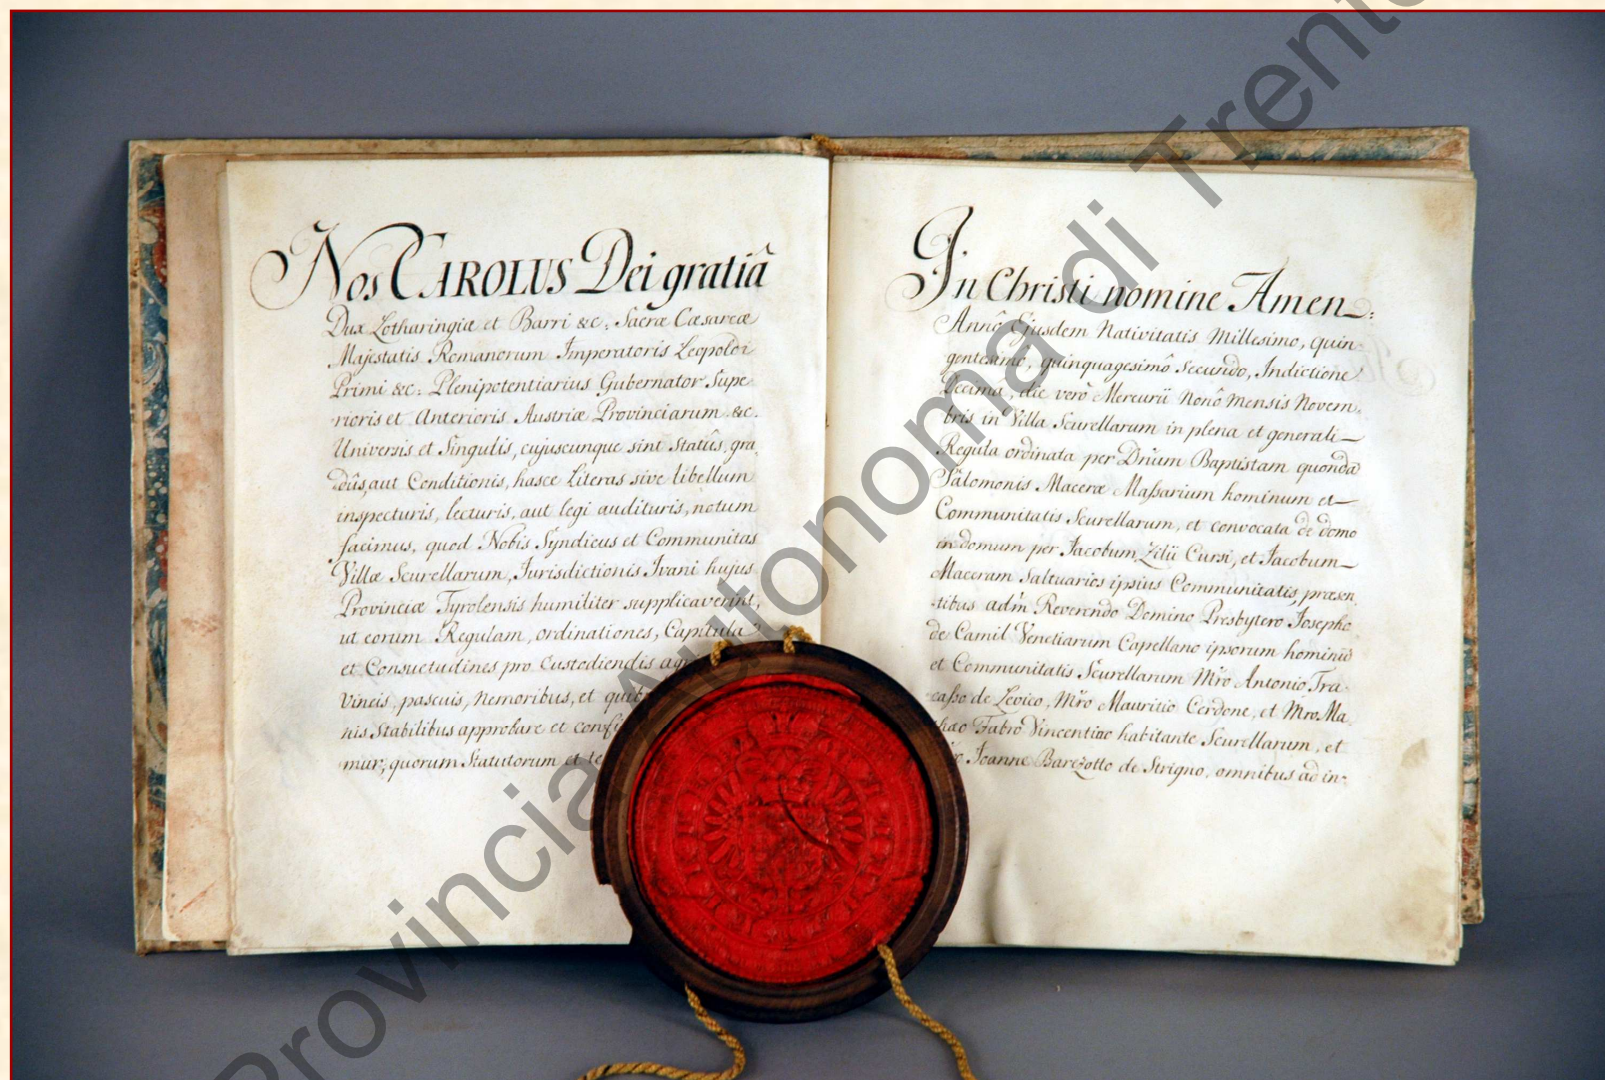 Nos CAROLUS Dei gratiâ
Dux Lotharingiæ et Barri &c: Sacræ Cæsareæ
Majestatis Romanorum Imperatoris Leopoldi
Primi &c: Plenipotentiarius Gubernator Supe-
rioris et Anterioris Austriæ Provinciarum &c.
Universis et Singulis, cujuscunque sint Statûs, gra-
dûs, aut Conditionis, hasce Literas sive libellum
inspecturis, lecturis, aut legi audituris, notum
facimus, quod Nobis Syndicus et Communitas
Villæ Scurellarum, Jurisdictionis Ivani hujus
Provinciæ Tyrolensis humiliter supplicaverint,
ut eorum Regulam, ordinationes, Capitula
et Consuetudines pro custodiendis
Vineis, pascuis, nemoribus, et
nis stabilibus approbare et
mur; quorum Statutorum et
In Christi nomine Amen:
Annô Ejusdem Nativitatis Millesimo, quin-
gentesimô, quinquagesimô secundo, Indictione
Decima, die verò Mercurii nonô mensis Novem-
bris in Villa Scurellarum in plena et generali
Regula ordinata per Dnum Baptistam quondã
Salomonis Maceræ Massarium hominum et
Communitatis Scurellarum, et convocata de domo
in domum per Jacobum Zilii Cursi, et Jacobum
Maceram Saltuarios ipsius Communitatis, præsen-
tibus adm Reverendo Domino Presbytero Josepho
de Camil Venetiarum Capellano ipsorum hominũ
et Communitatis Scurellarum Mro Antonio Tra-
casso de Levico, Mro Mauritio Cerdone, et Mro Ma-
thæo Fabro Vincentino habitante Scurellarum, et
Joanne Barezotto de Strigno, omnibus ad in-
Provincia Autonoma di Trento